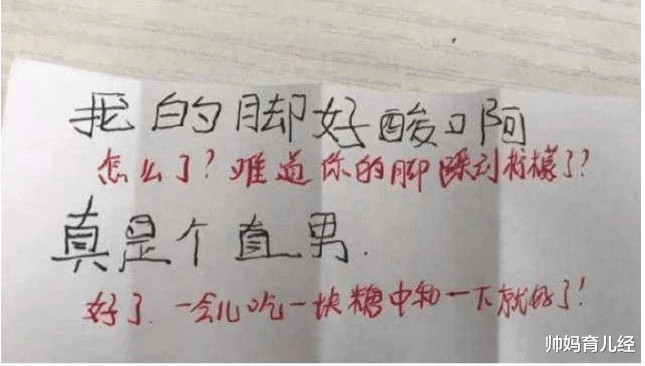 我的脚好酸啊
怎么了?难道你的脚踩到柠檬了?
真是个直男.
好了.一会儿吃一块糖中和一下就好了!
帅妈育儿经